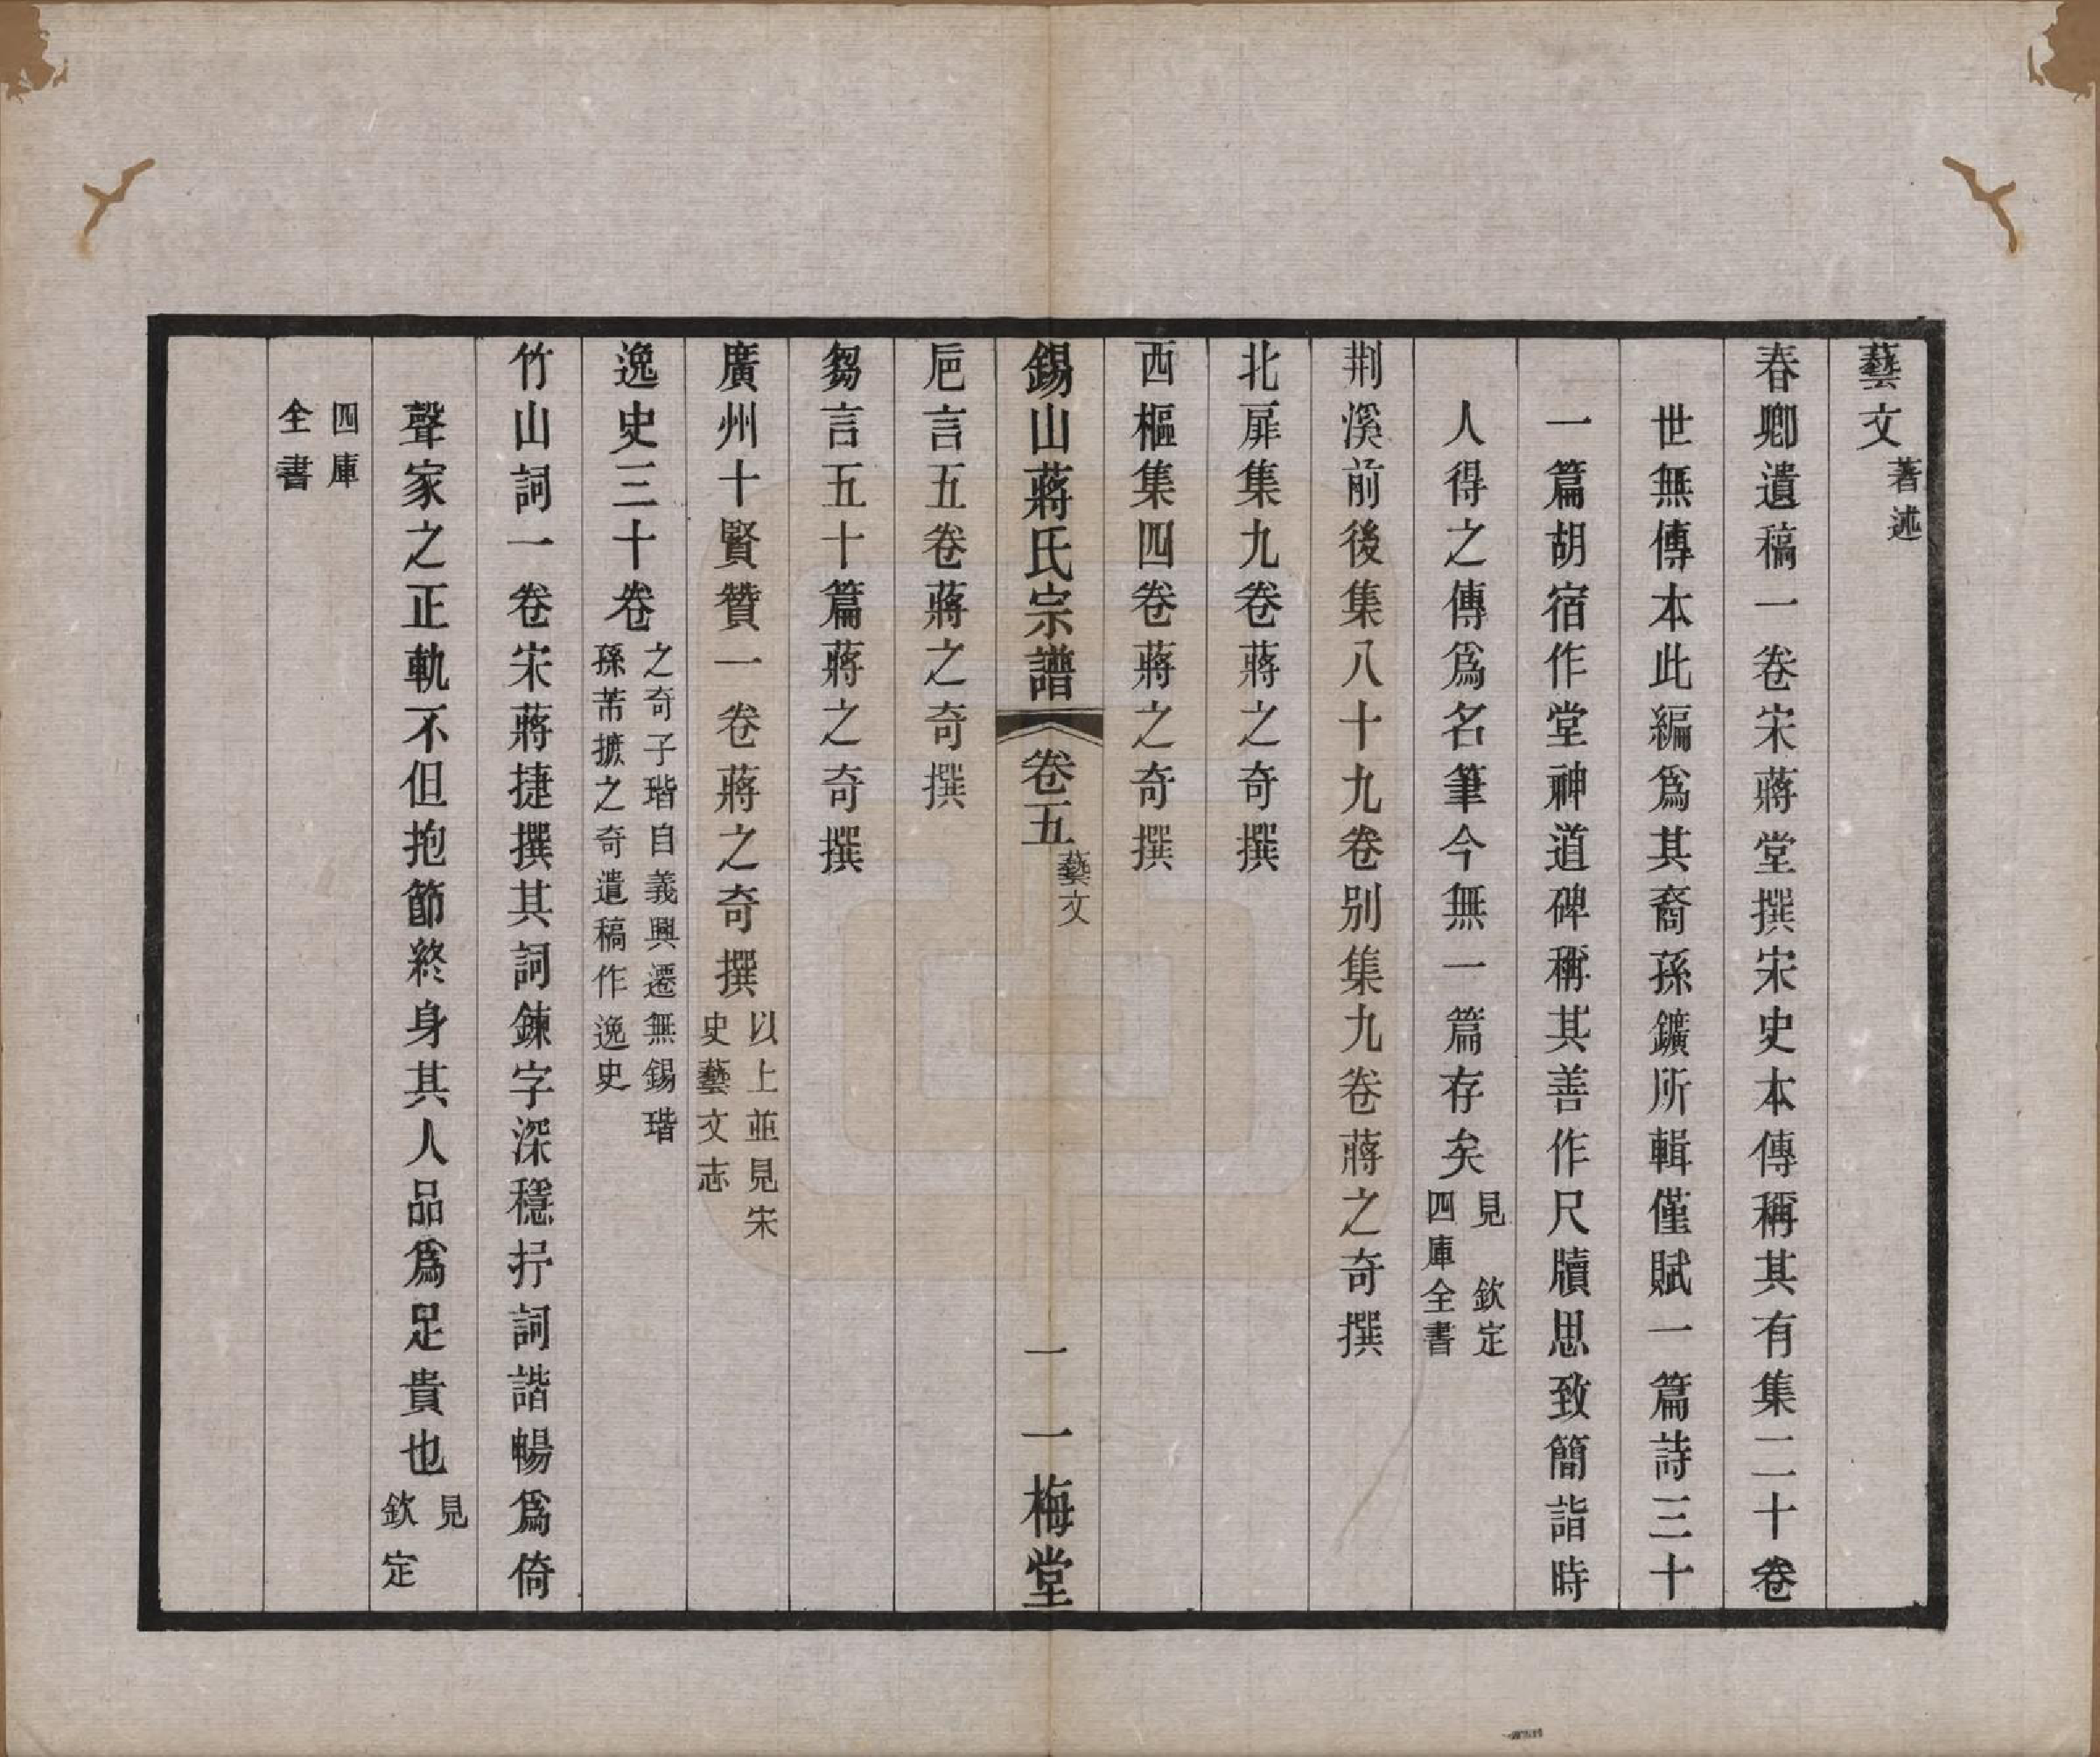 藝文著述
春卿遺稿一卷宋蔣堂撰宋史本傳稱其有集二十卷
世無傳本此編爲其裔孫鑛所輯僅賦一篇詩三十
一篇胡宿作堂神道碑稱其善作尺牘思致簡詣時
人得之傳爲名筆今無一篇存矣見 欽定四庫全書
荆溪前後集八十九卷别集九卷蔣之奇撰
北扉集九卷蔣之奇撰
西樞集四卷蔣之奇撰
錫山蔣氏宗譜 卷五 藝文 一 一梅堂
巵言五卷蔣之奇撰
芻言五十篇蔣之奇撰
廣州十賢贊一卷蔣之奇撰以上並見宋史藝文志
逸史三十卷之奇子瑎自義興遷無錫瑎孫芾摭之奇遺稿作逸史
竹山詞一卷宋蔣捷撰其詞鍊字深穩抒詞諧暢爲倚
聲家之正軌不但抱節終身其人品爲足貴也見欽定
四庫全書